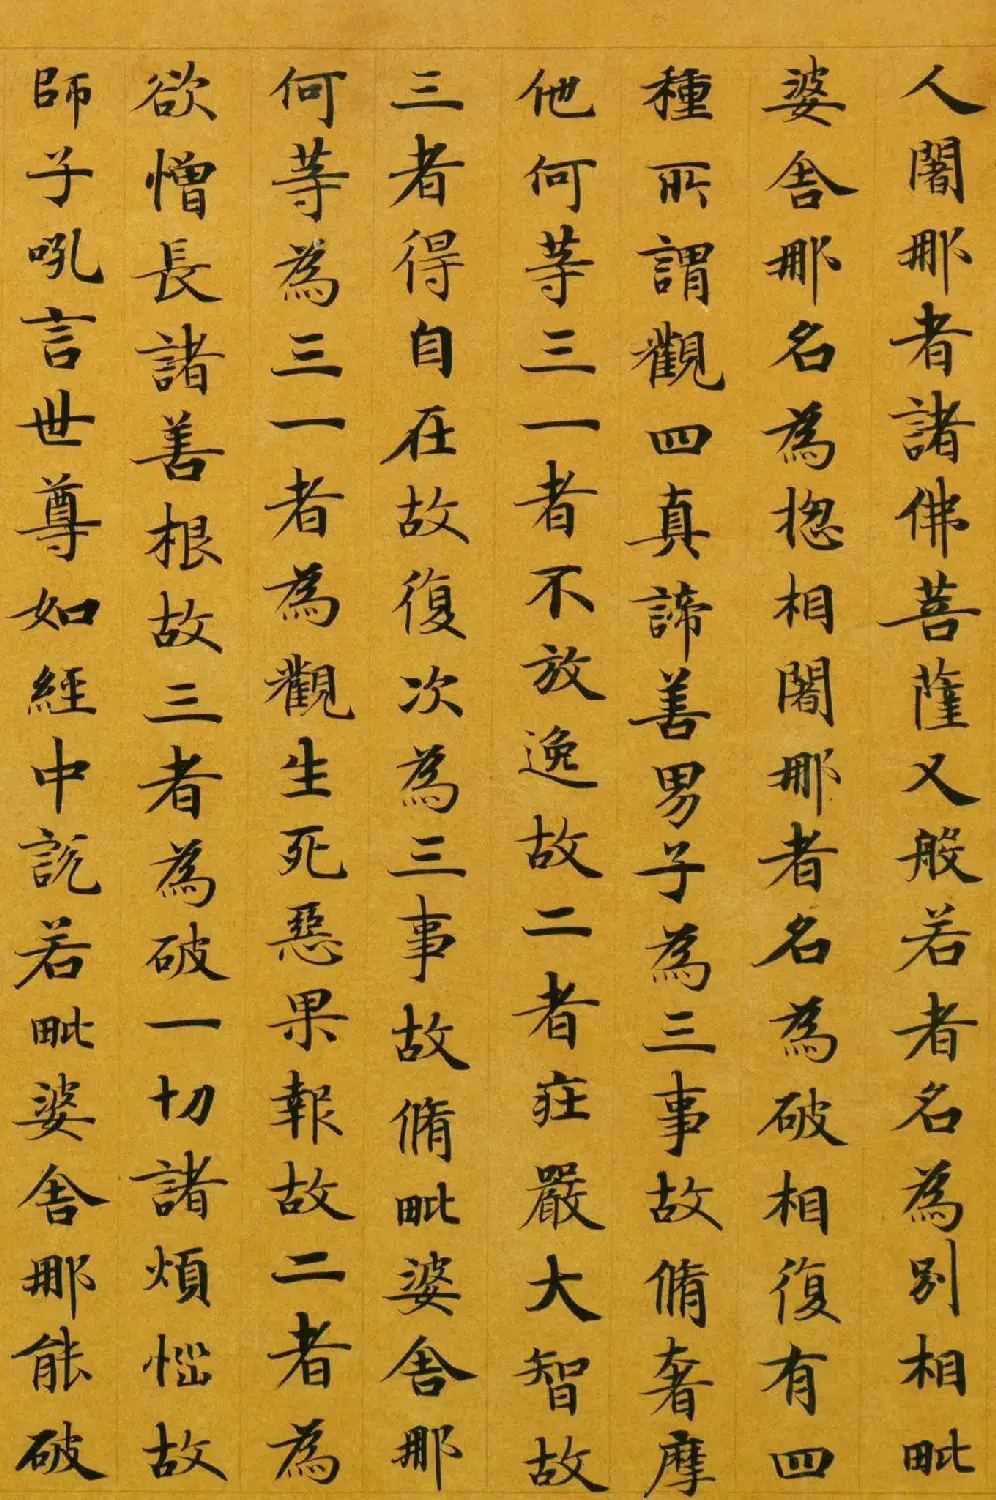 人闍那者諸佛菩薩又般若者名為別相毗
婆舍那名為揔相闍那者名為破相復有四
種所謂觀四真諦善男子為三事故脩奢摩
他何等三一者不放逸故二者莊嚴大智故
三者得自在故復次為三事故脩毗婆舍那
何等為三一者為觀生死惡果報故二者為
欲憎長諸善根故三者為破一切諸煩惱故
師子吼言世尊如經中說若毗婆舍那能破